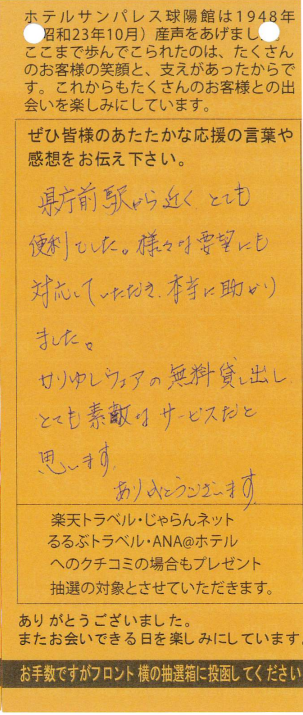 ホテルサンパレス球陽館は1948年
昭和23年10月）産声をあげまし
ここまで歩んでこられたのは、たくさん
のお客様の笑顔と、支えがあったからで
す。これからもたくさんのお客様との出
会いを楽しみにしています。
ぜひ皆様のあたたかな応援の言葉や
感想をお伝え下さい。
県庁前駅から近く とても
便利でした。様々な要望にも
対応していただき、本当に助かり
ました。
かりゆしウェアの無料貸し出し
とても素敵なサービスだと
思います。
ありがとうございます。
楽天トラベル・じゃらんネット
るるぶトラベル・ANA@ホテル
へのクチコミの場合もプレゼント
抽選の対象とさせていただきます。
ありがとうございました。
またお会いできる日を楽しみにしています
お手数ですがフロント横の抽選箱に投函してください